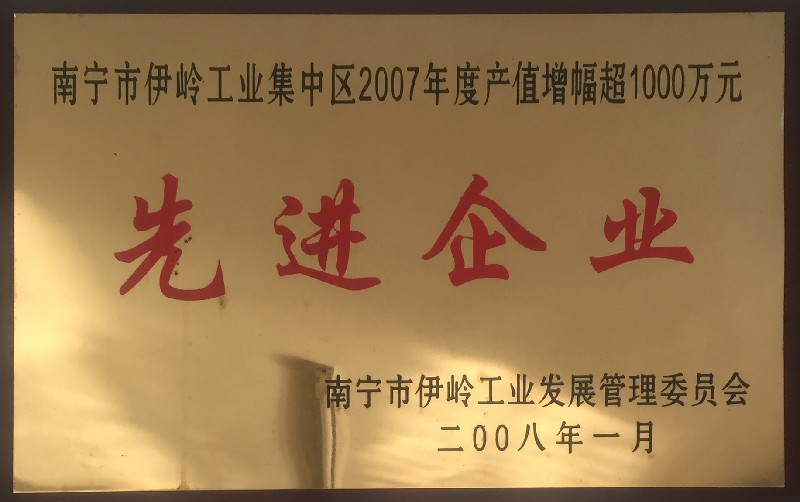 南宁市伊岭工业集中区2007年度产值增幅超1000万元
先进企业
南宁市伊岭工业发展管理委员会
二00八年一月